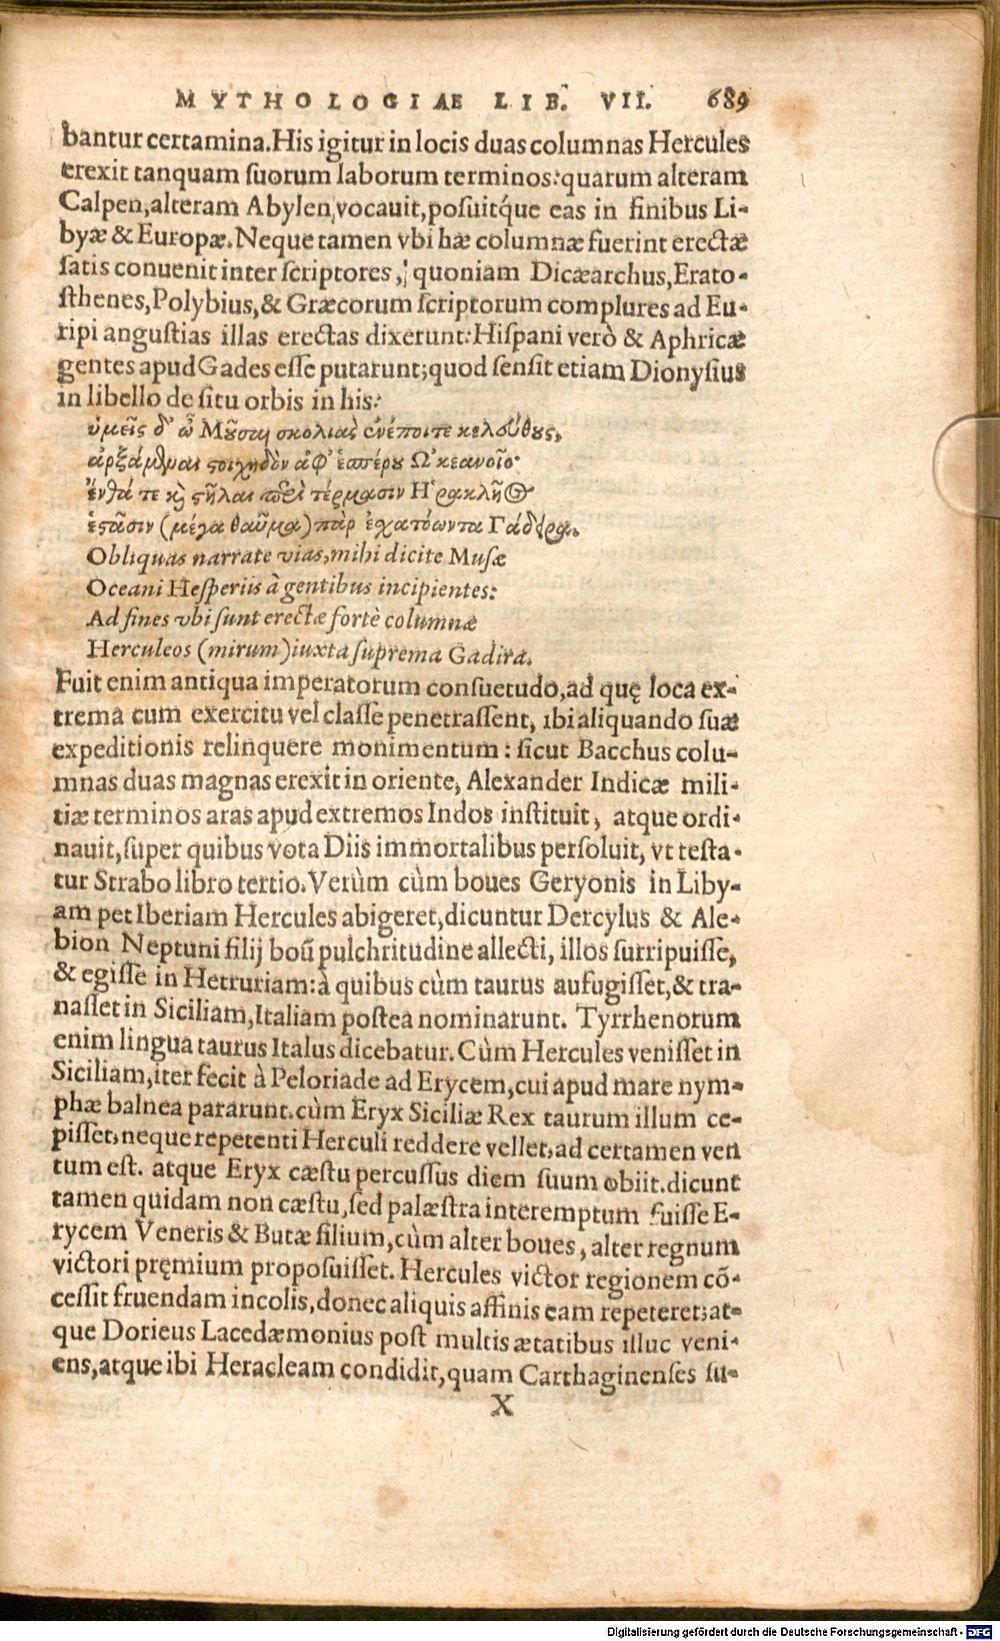 MYTHOLOGIAE LIB. VII. 689
bantur certamina. His igitur in locis duas columnas Hercules
erexit tanquam suorum laborum terminos: quarum alteram
Calpen, alteram Abylen, vocauit, posuitq́ue eas in finibus Li-
byæ & Europæ. Neque tamen vbi hæ columnæ fuerint erectæ
satis conuenit inter scriptores, quoniam Dicæarchus, Erato-
sthenes, Polybius, & Græcorum scriptorum complures ad Eu-
ripi angustias illas erectas dixerunt: Hispani verò & Aphricæ
gentes apud Gades esse putarunt; quod sensit etiam Dionysius
in libello de situ orbis in his:
ὑμεῖς δ' ὦ Μοῦσαι σκολιὰς ἐνέποιτε κελεύθους,
ἀρξάμεναι στοιχηδὸν ἀφ' ἑσπέρου Ὠκεανοῖο·
ἔνθά τε καὶ στῆλαι περὶ τέρμασιν Ἡρακλῆος
ἑστᾶσιν (μέγα θαῦμα) πὰρ ἐσχατόωντα Γάδειρα.
Obliquas narrate vias, mihi dicite Musæ
Oceani Hesperiis à gentibus incipientes:
Ad fines vbi sunt erectæ fortè columnæ
Herculeos (mirum) iuxta suprema Gadira.
Fuit enim antiqua imperatorum consuetudo, ad quę loca ex-
trema cum exercitu vel classe penetrassent, ibi aliquando suæ
expeditionis relinquere monimentum: sicut Bacchus colu-
mnas duas magnas erexit in oriente, Alexander Indicæ mili-
tiæ terminos aras apud extremos Indos instituit, atque ordi-
nauit, super quibus vota Diis immortalibus persoluit, vt testa-
tur Strabo libro tertio. Verùm cùm boues Geryonis in Liby-
am pet Iberiam Hercules abigeret, dicuntur Dercylus & Ale-
bion Neptuni filij boũ pulchritudine allecti, illos surripuisse,
& egisse in Hetruriam: à quibus cùm taurus aufugisset, & tra-
nasset in Siciliam, Italiam postea nominarunt. Tyrrhenorum
enim lingua taurus Italus dicebatur. Cùm Hercules venisset in
Siciliam, iter fecit à Peloriade ad Erycem, cui apud mare nym-
phæ balnea pararunt. cùm Eryx Siciliæ Rex taurum illum ce-
pisset, neque repetenti Herculi reddere vellet, ad certamen ven
tum est. atque Eryx cæstu percussus diem suum obiit. dicunt
tamen quidam non cæstu, sed palæstra interemptum fuisse E-
rycem Veneris & Butæ filium, cùm alter boues, alter regnum
victori pręmium proposuisset. Hercules victor regionem cõ-
cessit fruendam incolis, donec aliquis affinis eam repeteret; at-
que Dorieus Lacedæmonius post multis ætatibus illuc veni-
ens, atque ibi Heracleam condidit, quam Carthaginenses su-
X
Digitalisierung gefördert durch die Deutsche Forschungsgemeinschaft - DFG